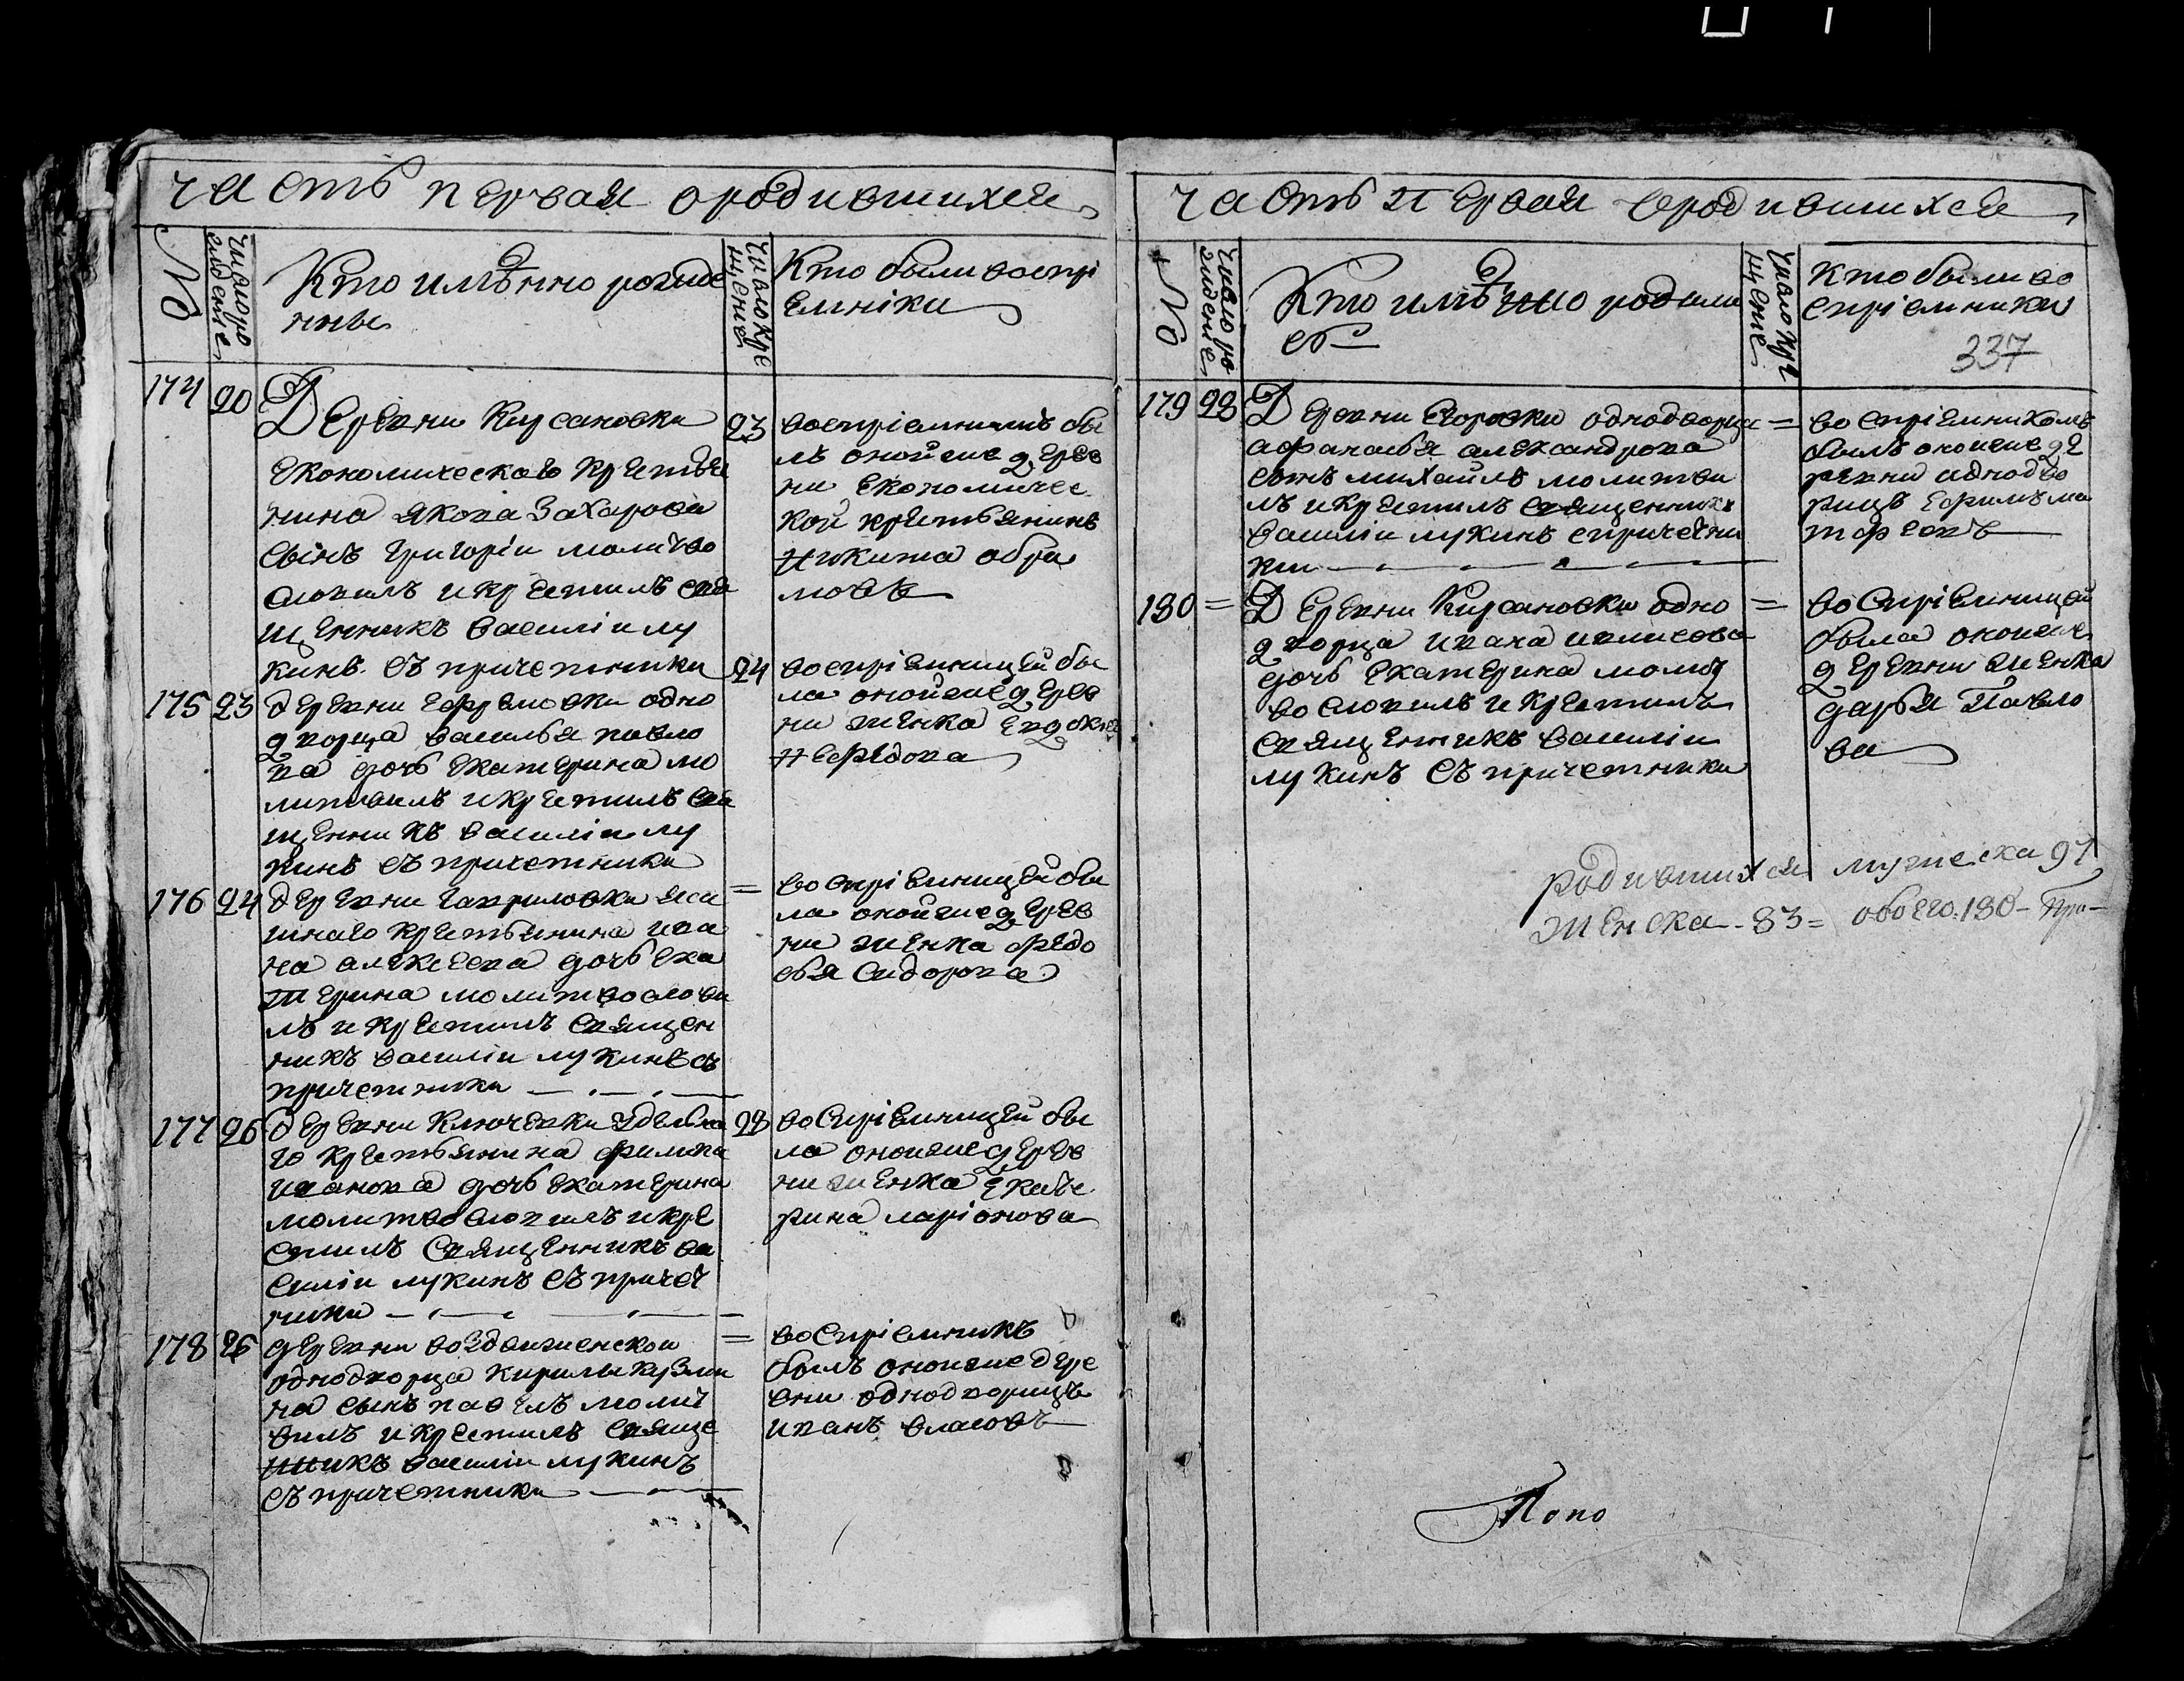 часть первая ородившихся
№
число ро
ждение
Кто имѣнно рожде
нны
число кре
щение
Кто были воспрі
емніки
174
20
Деревни Кирсановки
економическаго крестья
нина якова Захарова
сынъ григоріи молитво
словилъ и крестилъ свя
щенникъ василіи лу
кинъ съ причетники
23
воспріемникъ бы
лъ оной же дерев
ни економичес
кой крестьянинъ
никита обра
мовъ
175
23
деревни ефремовки одно
дворца василья павло
ва дочь екатерина мо
литвилъ и крестилъ свя
щенникъ василіи лу
кинъ съ причетники
24
воспріемницей бы
ла оной же дерев
ни женка евдокея
нефедова
176
24
деревни гавриловки яса
шнаго крестьянина ива
на алексеева дочь ека
терина молитвослови
лъ и крестилъ священ
никъ василіи лукинъ съ
причетники
=
воспріемницей бы
ла оной же дерев
ни женка федо
сья сидорова
177
26
деревни Ключевки удельна
го крестьянина филипа
иванова дочь екатерина
молитвословилъ и кре
стилъ священникъ ва
силіи лукинъ съ причет
ники
28
воспріемницей бы
ла оной же дерев
ни женка екате
рина ларіонова
178
26
деревни воздвиженской
однодворца кирилы кузми
на сынъ павелъ молит
вилъ и крестилъ свяще
нникъ василіи лукинъ
съ причетники
=
воспріемникъ
былъ оной же дере
вни однодворицъ
иванъ власовъ
часть первая ородившихся
№
число ро
ждение
Кто имѣнно родили
сь
число кре
щение
кто были во
спріемники
337
179
28
Деревни Егоровки однодворца
афанасья александрова
сынъ михаилъ молитви
лъ и крестилъ священникъ
василіи лукинъ спричетни
ки
=
воспріемникомъ
былъ оной же де
ревни однодво
рицъ ефимъ ма
тфеевъ
180
=
Деревни Кирсановки одно
дворца ивана
дочь екатерина молит
вословилъ и крестилъ
священникъ василіи
лукинъ съ причетники
=
воспріемницей
была оной же
деревни женка
дарья павло
ва
родившихся мужеска 97
женска - 83 = обоего: 180 -
Попо